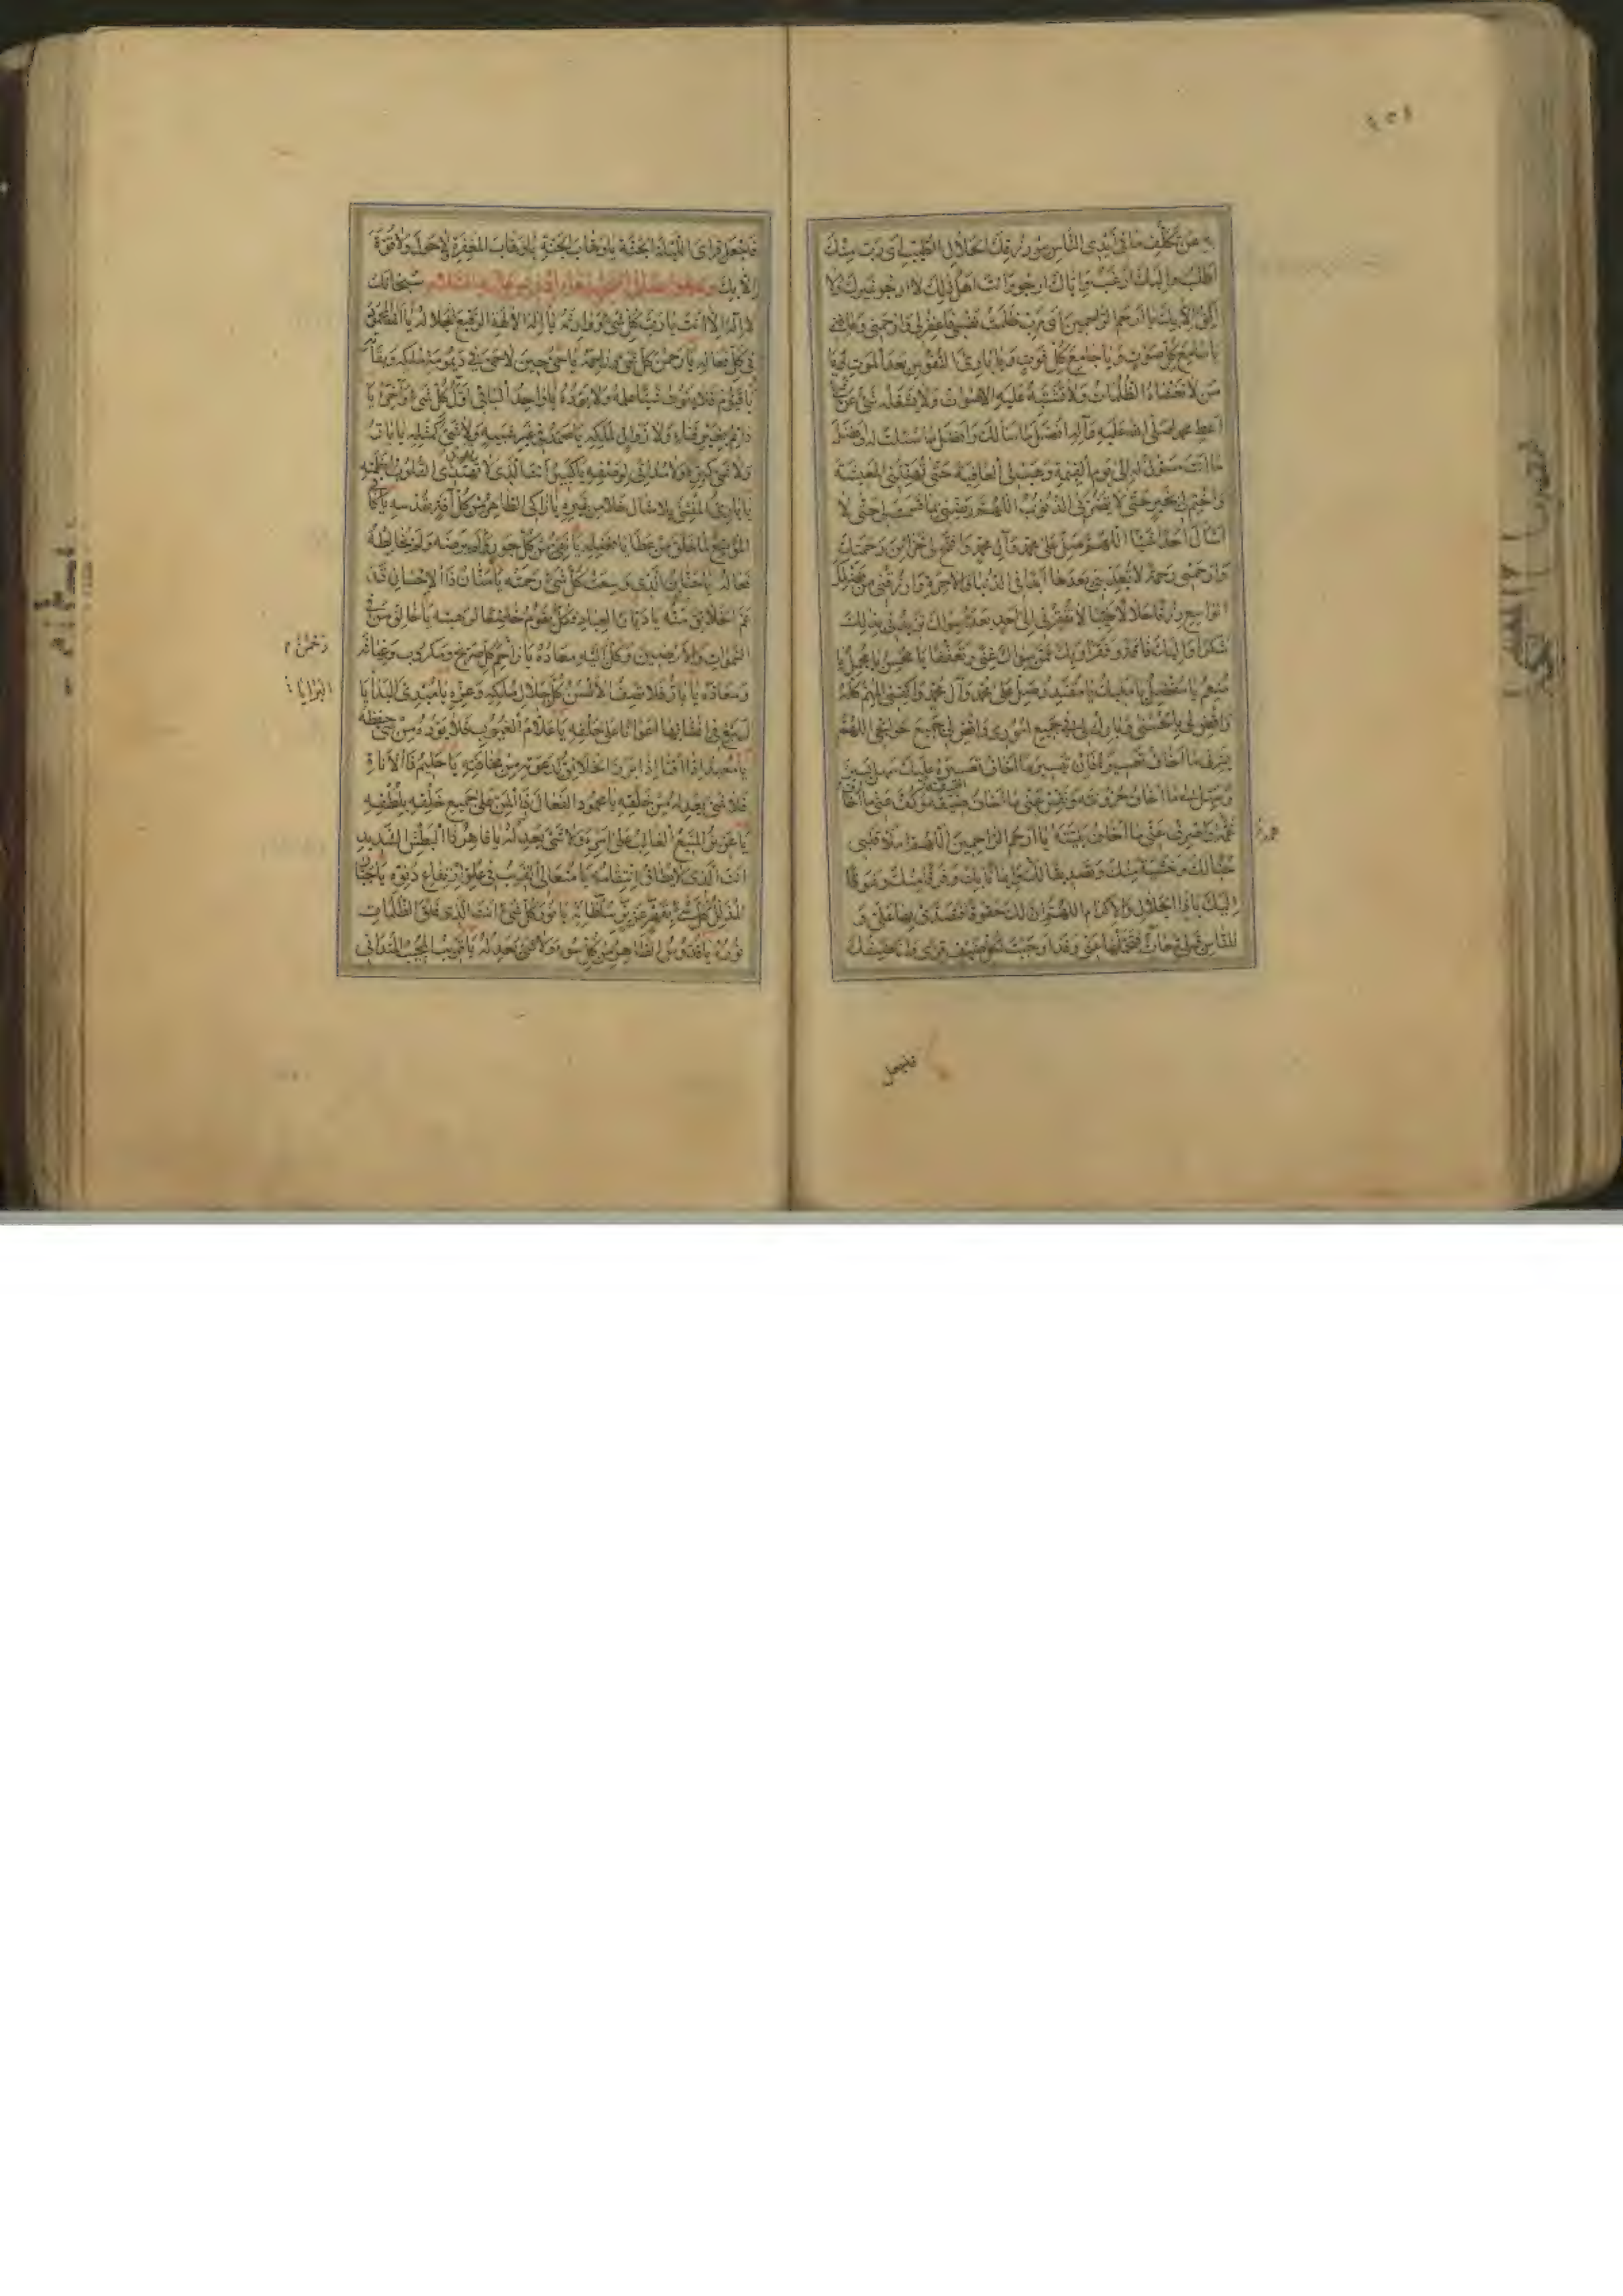 عن تكلف ما في أيدي الناس من رزقك الحلال الطيب اي رب منك
اطلب واليك ارغب واياك ارجو وانت اهل ذلك لا ارجو غيرك ولا
اثق الا بك يا ارحم الراحمين اي رب ظلمت نفسي فاغفر لي وارحمني وعافني
يا سامع كل صوت ويا جامع كل فوت ويا بارئ النفوس بعد الموت ويا
من لا تغشاه الظلمات ولا تشتبه عليه الاصوات ولا يشغله شئ عن شئ
اعط محمدا صلى الله عليه وآله افضل ما سألك وافضل ما سئلت له وافضل
ما انت مسؤل له الى يوم القيمة وهب لي العافية حتى تهنئني المعيشة
واختم لي بخير حتى لا تضرني الذنوب اللهم رضني بما قسمت لي حتى لا
اسأل احدا شيئا اللهم صل على محمد وآل محمد وافتح لي خزائن رحمتك
وارحمني رحمة لا تعذبني بعدها ابدا في الدنيا والآخرة وارزقني من فضلك
الواسع رزقا حلالا طيبا لا تفقرني الى احد بعده سواك تزيدني بذلك
شكرا واليك فاقة وفقرا وبك عمن سواك غنى وتعففا يا محسن يا مجمل يا
منعم يا مفضل يا مليك يا مقتدر صل على محمد وآل محمد واكفني المهم كله
واقض لي بالحسنى وبارك لي في جميع اموري واقض لي جميع حوائجي اللهم
يسر لي ما اخاف تعسيره فان تيسير ما اخاف تعسيره عليك سهل يسير
وسهل لي ما اخاف حزونته ونفس عني ما اخاف ضيقه وكف عني ما اخاف
غمه واصرف عني ما اخاف بليته يا ارحم الراحمين اللهم املأ قلبي
حبا لك وخشية منك وتصديقا لك وايمانا بك وفرقا منك وشوقا
اليك يا ذا الجلال والاكرام اللهم ان لك حقوقا فتصدق بها علي و
للناس قبلي تبعات فتحملها عني وقد اوجبت لكل ضيف قرى وانا ضيفك
فاجعل
فاجعل قراي الليلة الجنة يا وهاب الجنة يا وهاب المغفرة لا حول ولا قوة
الا بك عليه السلام سبحانك
لا اله الا انت يا رب كل شئ ووارثه يا اله الآلهة الرفيع جلاله يا الله المحمود
في كل فعاله يا رحمن كل شئ وراحمه يا حي حين لا حي في ديمومة ملكه وبقائه
يا قيوم فلا يفوت شيئا علمه ولا يؤده يا واحد الباقي اول كل شئ وآخره يا
دائم بغير فناء ولا زوال لملكه يا صمد في غير شبيه ولا شئ كمثله يا بار
ولا شئ كفوه ولا مداني لوصفه يا كبير انت الذي لا تهتدي القلوب لعظمته
يا بارئ المنشئ بلا مثال خلا من غيره يا زاكي الطاهر من كل آفة بقدسه يا كافي
الموسع لما خلق من عطايا فضله يا نقي من كل جور لم يرضه ولم يخالطه
فعاله يا حنان الذي وسعت كل شئ رحمته يا منان ذا الاحسان قد
عم الخلائق منه يا ديان العباد فكل يقوم خاضعا لرهبته يا خالق من في
السموات والارضين وكل اليه معاده يا راحم كل صريخ ومكروب وغياثه
رحمن
ومعاذه يا بار فلا تصف الالسن كل جلال ملكه وعزه يا مبدئ البدايا
البرايا
لم يبغ في انشائها اعوانا على خلقه يا علام الغيوب فلا يؤده من شئ حفظه
يا معيدا ما افنى اذا برز الخلائق لدعوته من مخافته يا حليم ذا الاناة
فلا شئ يعدله من خلقه يا محمود الفعال ذا المن على جميع خلقه بلطفه
يا عزيز المنيع الغالب على امره ولا شئ يعدله يا قاهر ذا البطش الشديد
انت الذي لا يطاق انتقامه يا متعالي القريب في علو ارتفاع دنوه يا جبار
المذلل كل شئ بقهر عزيز سلطانه يا نور كل شئ انت الذي فلق الظلمات
نوره يا قدوس الطاهر من كل سوء ولا شئ يعدله يا قريب المجيب المتداني